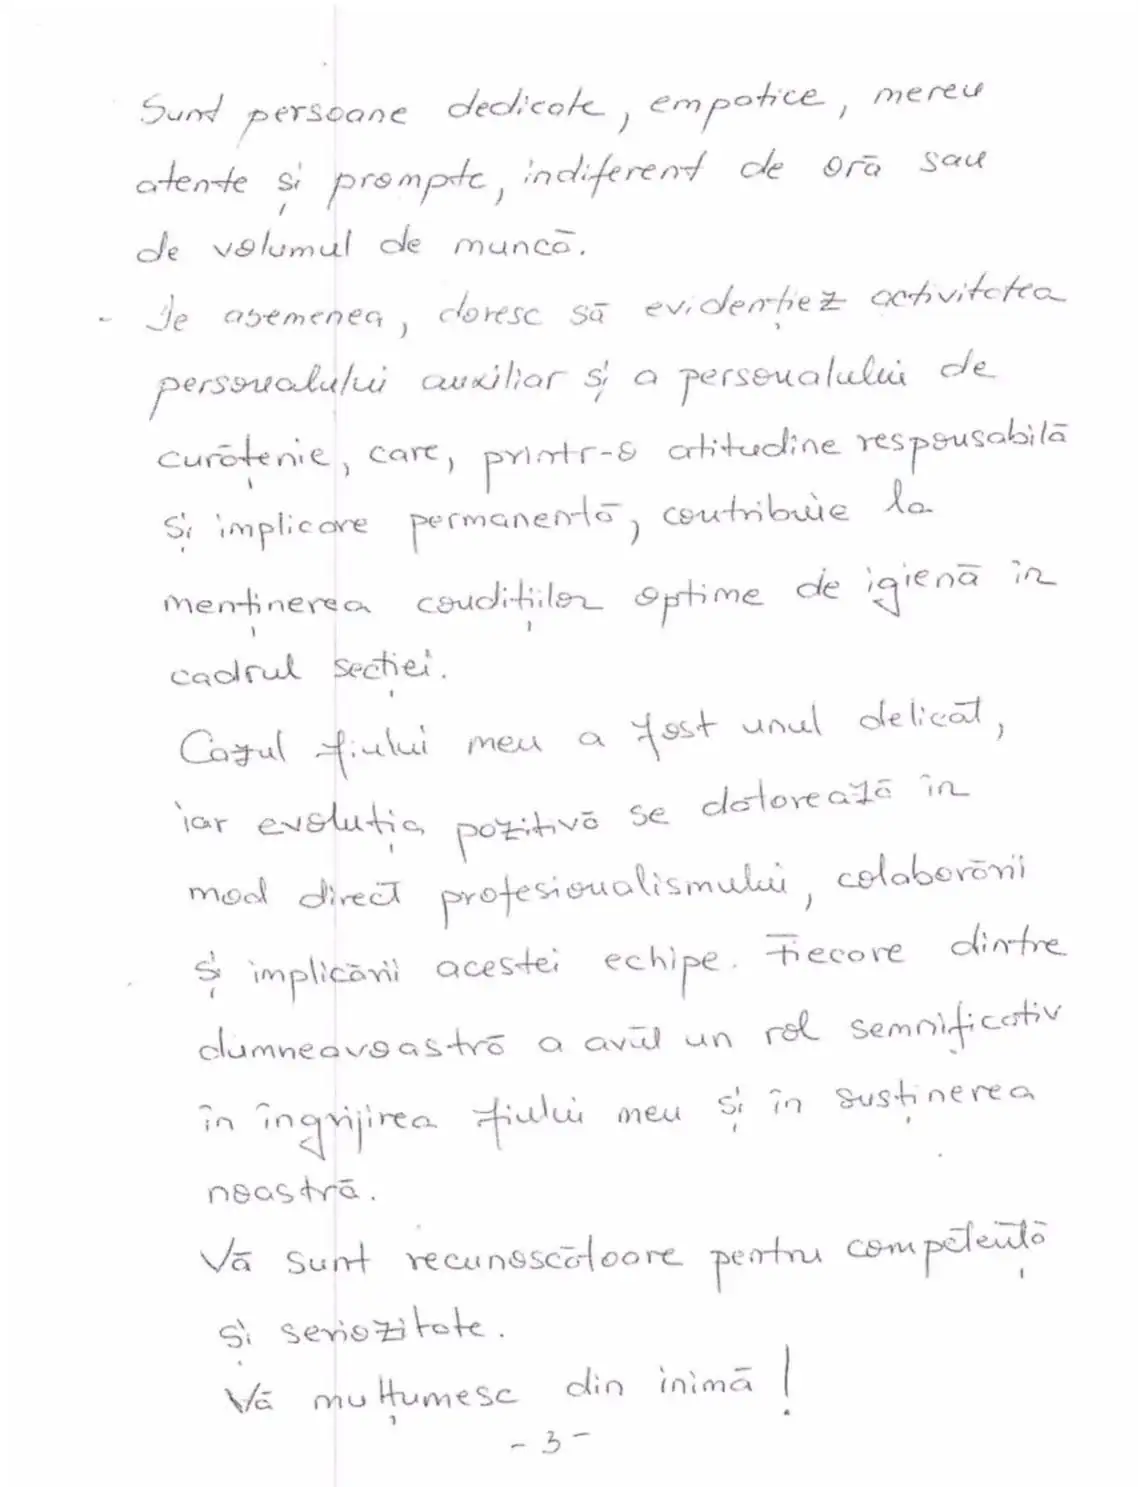 Sunt persoane dedicate, empatice, mereu
atente și prompte, indiferent de oră sau
de volumul de muncă.
- De asemenea, doresc să evidențiez activitatea
personalului auxiliar și a personalului de
curățenie, care, printr-o atitudine responsabilă
și implicare permanentă, contribuie la
menținerea condițiilor optime de igienă în
cadrul secției.
Cazul fiului meu a fost unul delicat,
iar evoluția pozitivă se datorează în
mod direct profesionalismului, colaborării
și implicării acestei echipe. Fiecare dintre
dumneavoastră a avut un rol semnificativ
în îngrijirea fiului meu și în susținerea
noastră.
Vă sunt recunoscătoare pentru competență
și seriozitate.
Vă mulțumesc din inimă!
- 3 -